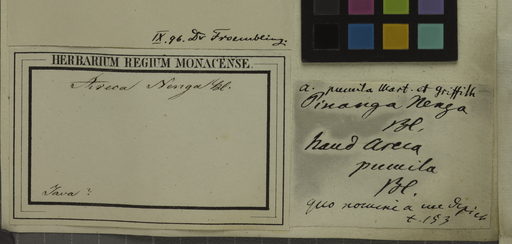 IX. 96. Dr Froembling.
HERBARIUM REGIUM MONACENSE.
Areca Nenga Bl.
Java?
a. pumila Mart. et Griffith
Pinanga Nenga
Bl.
haud Areca
pumila
Bl.
quo nomine a me depict
t. 153